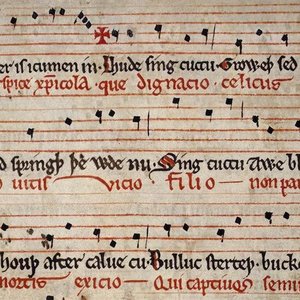 er is icumen in· Lhude sing cuccu· Groweþ sed
spice xp̄icola· que dignacio· celicus
d springþ þe wde nu· Sing cuccu Awe bl
o uitis vicio· filio non pa
houþ after calue cu· Bulluc sterteþ· bucke
mortis exicio Qui captiuos semi